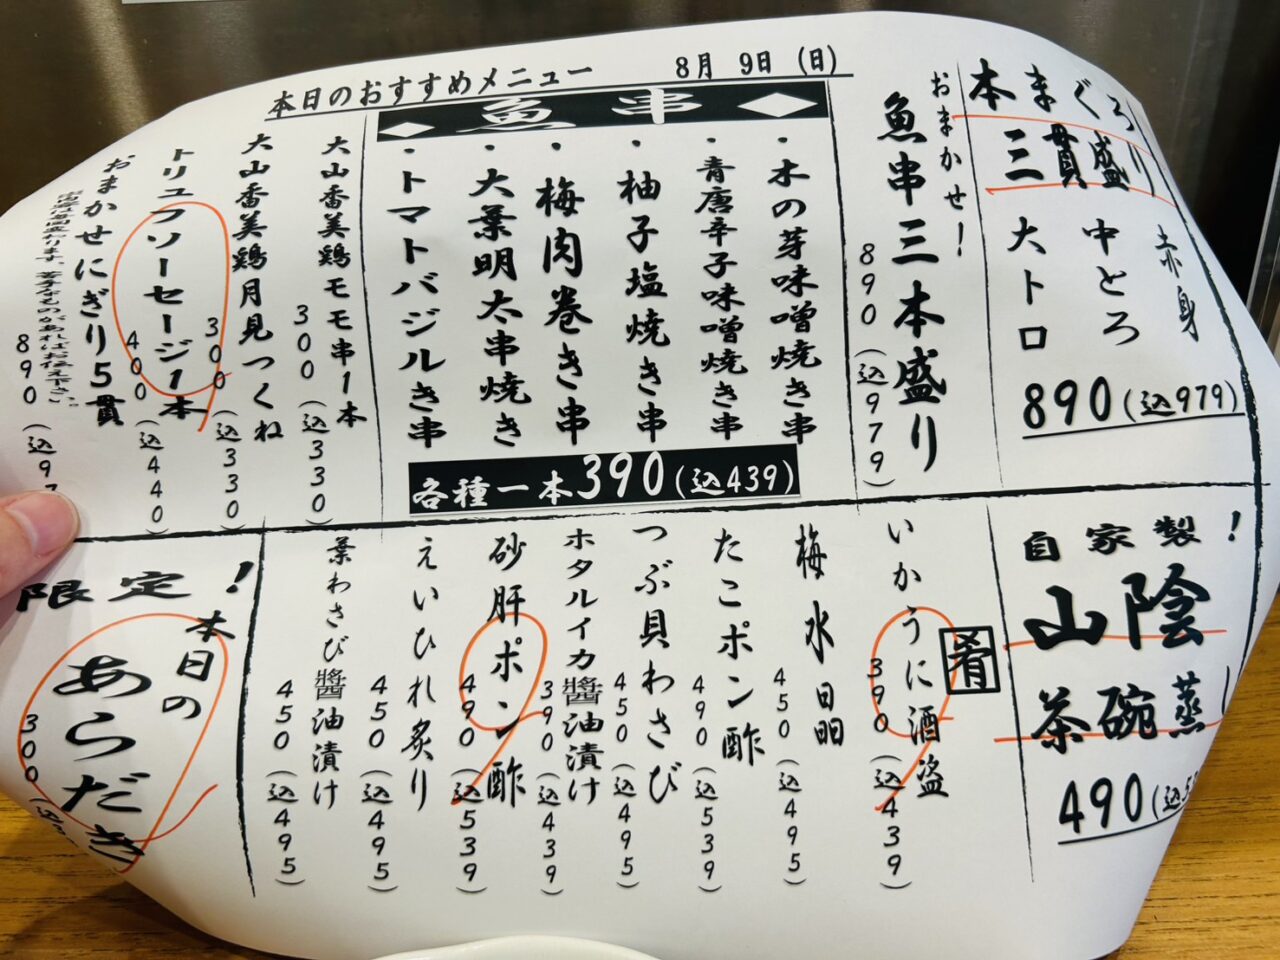 本日のおすすめメニュー 8月 9日 (日)
本まぐろ
三貫盛り
赤身
中とろ
大トロ
890(込979)
おまかせ!
魚串三本盛り
890(込979)
◆魚串◆
・木の芽味噌焼き串
・青唐辛子味噌焼き串
・柚子塩焼き串
・梅肉巻き串
・大葉明太串焼き
・トマトバジルき串
各種一本390(込439)
大山香美鶏モモ串1本
300(込330)
大山香美鶏月見つくね
300(込330)
トリュフソーセージ1本
400(込440)
おまかせにぎり5貫
890(込9
自家製!
山陰
茶碗蒸し
490(込5
肴
いかうに酒盗
390(込439)
梅水晶
450(込495)
たこポン酢
490(込539)
つぶ貝わさび
450(込495)
ホタルイカ醬油漬け
390(込439)
砂肝ポン酢
490(込539)
えいひれ炙り
450(込495)
葉わさび醬油漬け
450(込495)
限定!
本日の
あらだき
300(込